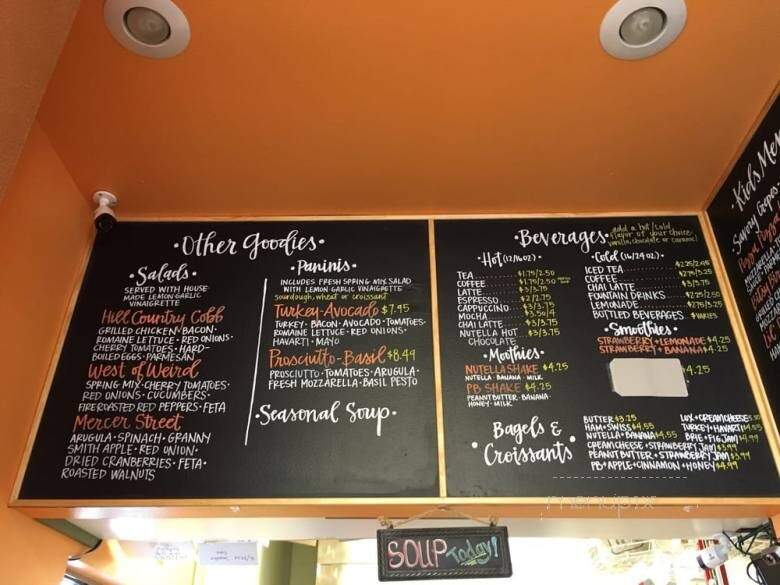 ·Other Goodies·
·Salads·
SERVED WITH HOUSE
MADE LEMON·GARLIC
VINAIGRETTE
Hill Country Cobb
GRILLED CHICKEN·BACON·
ROMAINE LETTUCE·RED ONIONS·
CHERRY TOMATOES·HARD-
BOILED EGGS·PARMESAN
West of Weird
SPRING MIX·CHERRY TOMATOES·
RED ONIONS·CUCUMBERS·
FIRE ROASTED RED PEPPERS·FETA
Mercer Street
ARUGULA·SPINACH·GRANNY
SMITH APPLE·RED ONION·
DRIED CRANBERRIES·FETA·
ROASTED WALNUTS
·Paninis·
INCLUDES FRESH SPRING MIX SALAD
WITH LEMON GARLIC VINAIGRETTE
sourdough, wheat or croissant
Turkey-Avocado $7.95
TURKEY·BACON·AVOCADO·TOMATOES·
ROMAINE LETTUCE·RED ONIONS·
HAVARTI·MAYO
Prosciutto-Basil $8.49
PROSCIUTTO·TOMATOES·ARUGULA·
FRESH MOZZARELLA·BASIL PESTO
·Seasonal Soup·
·Beverages·
add a hot/cold
flavor of your choice
vanilla, chocolate or caramel
·Hot (12/16oz)·
TEA $1.75/2.50
COFFEE $1.75/2.50
LATTE $3/3.75
ESPRESSO $2/2.75
CAPPUCCINO $3/3.75
MOCHA $3.50/4
CHAI LATTE $3/3.75
NUTELLA HOT $3/3.75
CHOCOLATE
·Moothies·
NUTELLA SHAKE $4.25
NUTELLA·BANANA·MILK
PB SHAKE $4.25
PEANUT BUTTER·BANANA·
HONEY·MILK
·Cold (16/24oz)·
ICED TEA
COFFEE $2.75/3.25
CHAI LATTE $3/3.75
FOUNTAIN DRINKS $2.25/2.50
LEMONADE $2.75/3.25
BOTTLED BEVERAGES $VARIES
·Smoothies·
STRAWBERRY·LEMONADE $4.25
STRAWBERRY·BANANA $4.25
4.25
Bagels &
·Croissants·
BUTTER $3.25
HAM+SWISS $4.55
NUTELLA+BANANA $4.55
CREAM CHEESE+STRAWBERRY JAM $3.99
PEANUT BUTTER+STRAWBERRY JAM $3.99
PB+APPLE+CINNAMON+HONEY $4.49
LOX+CREAM CHEESE
TURKEY+HAVARTI $4.55
BRIE+FIG JAM $4.99
·Kids Men
Savory Crepes
menupix
SOUP Today!